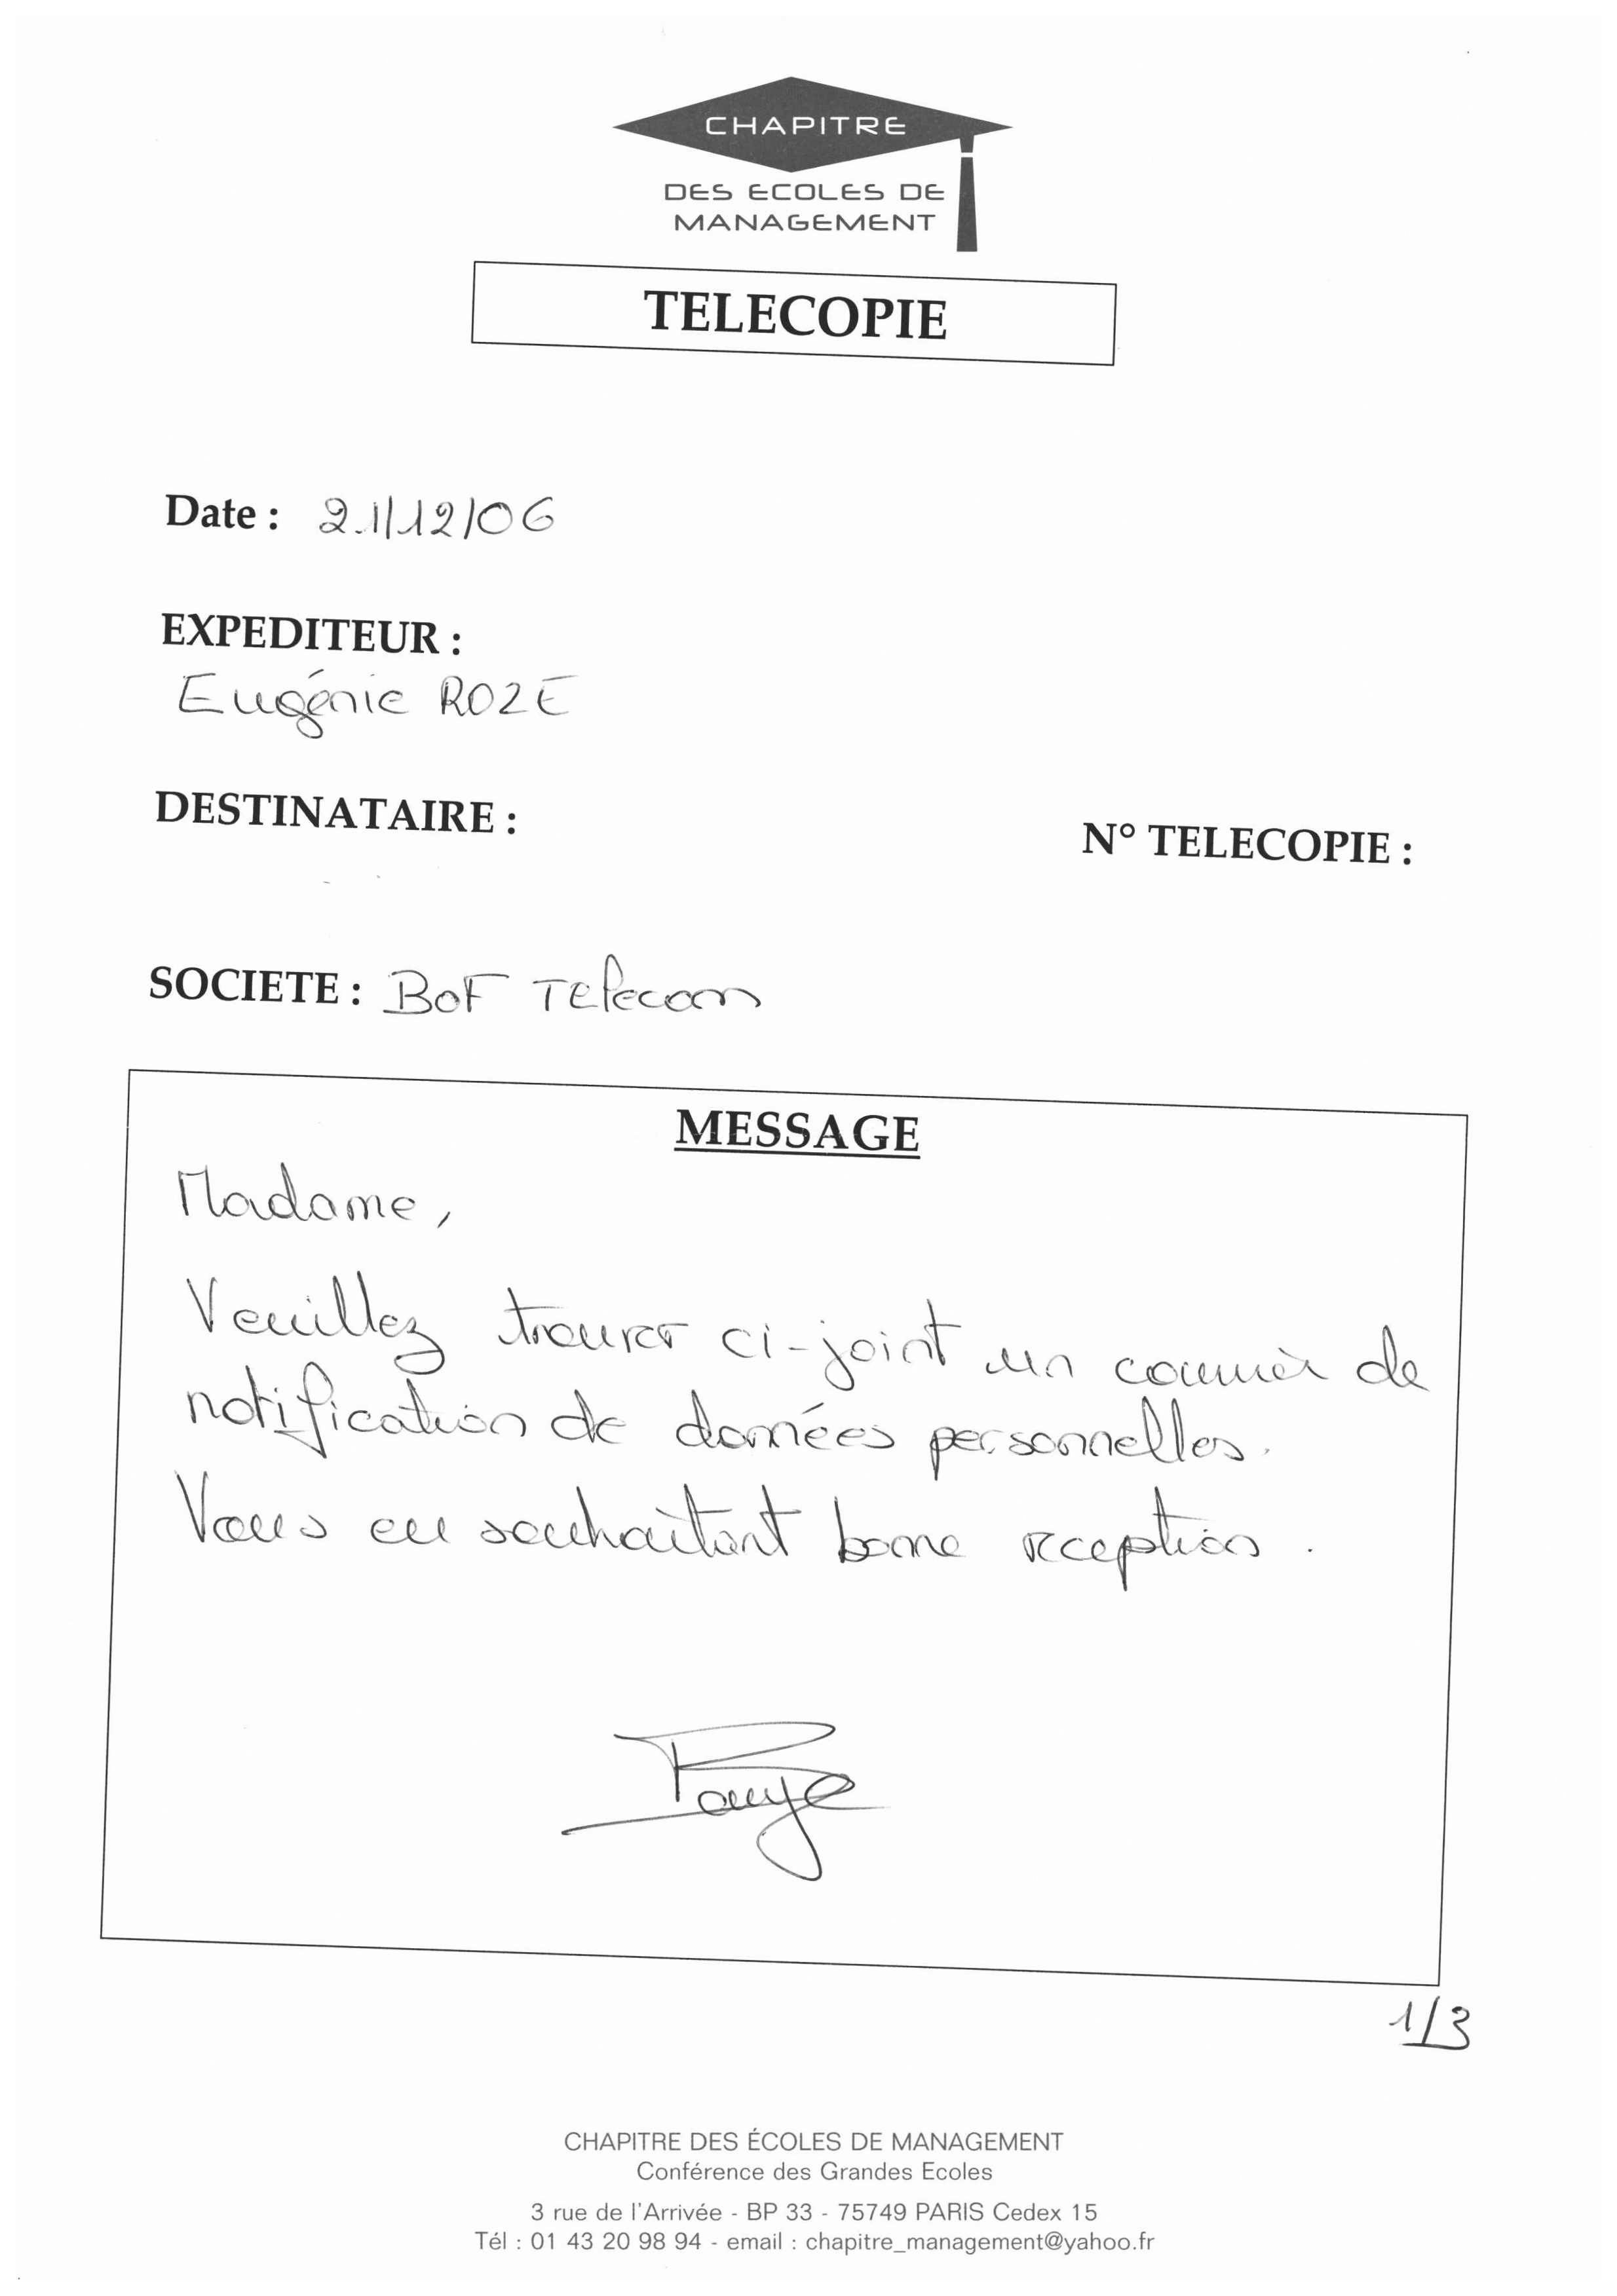 CHAPITRE
DES ECOLES DE
MANAGEMENT
TELECOPIE
Date : 21/12/06
EXPEDITEUR :
Eugénie ROZE
DESTINATAIRE :
N° TELECOPIE :
SOCIETE : BOF TElecom
MESSAGE
Madame,
Veuillez trouver ci-joint un courrier de
notification de données personnelles.
Vous en souhaitant bonne reception.
1/3
CHAPITRE DES ÉCOLES DE MANAGEMENT
Conférence des Grandes Ecoles
3 rue de l'Arrivée - BP 33 - 75749 PARIS Cedex 15
Tél : 01 43 20 98 94 - email : chapitre_management@yahoo.fr